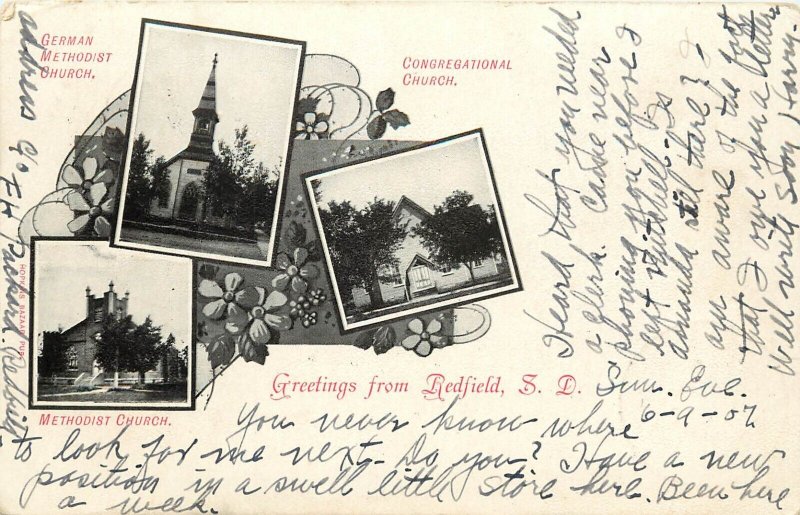 GERMAN
METHODIST
CHURCH.
CONGREGATIONAL
CHURCH.
HOPKINS BAZAAR PUB.
METHODIST CHURCH.
Greetings from Redfield, S. D.
Sun. Eve.
6-9-07
You never know where
to look for me next. Do you? Have a new
position in a swell little store here. Been here
a week.
Heard that you needed
a clerk. Came near
phoning you before I
left Nutshell. Is
Amanda still there? I
am aware of the fact
that I owe you a letter
Will write soon Harry.
address c/o F.H. Packard.